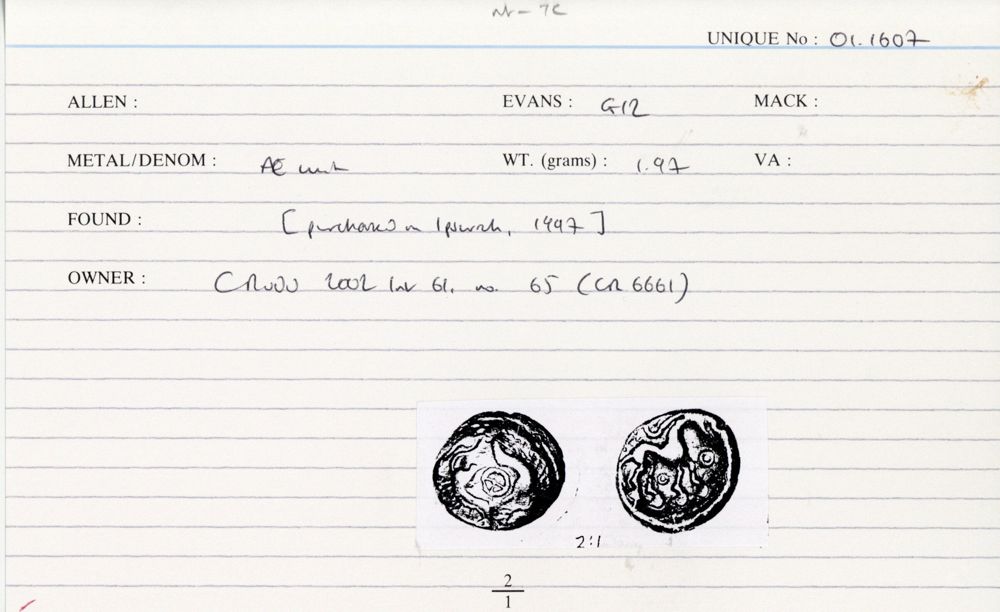 UNIQUE No : 01.1607
ALLEN :
EVANS : G12
MACK :
METAL/DENOM : AE unit
WT. (grams) : 1.97
VA :
FOUND : [purchased in Ipswich, 1997]
OWNER : 2002 list 61, no. 65 (CR 6661)
2:1
2
1